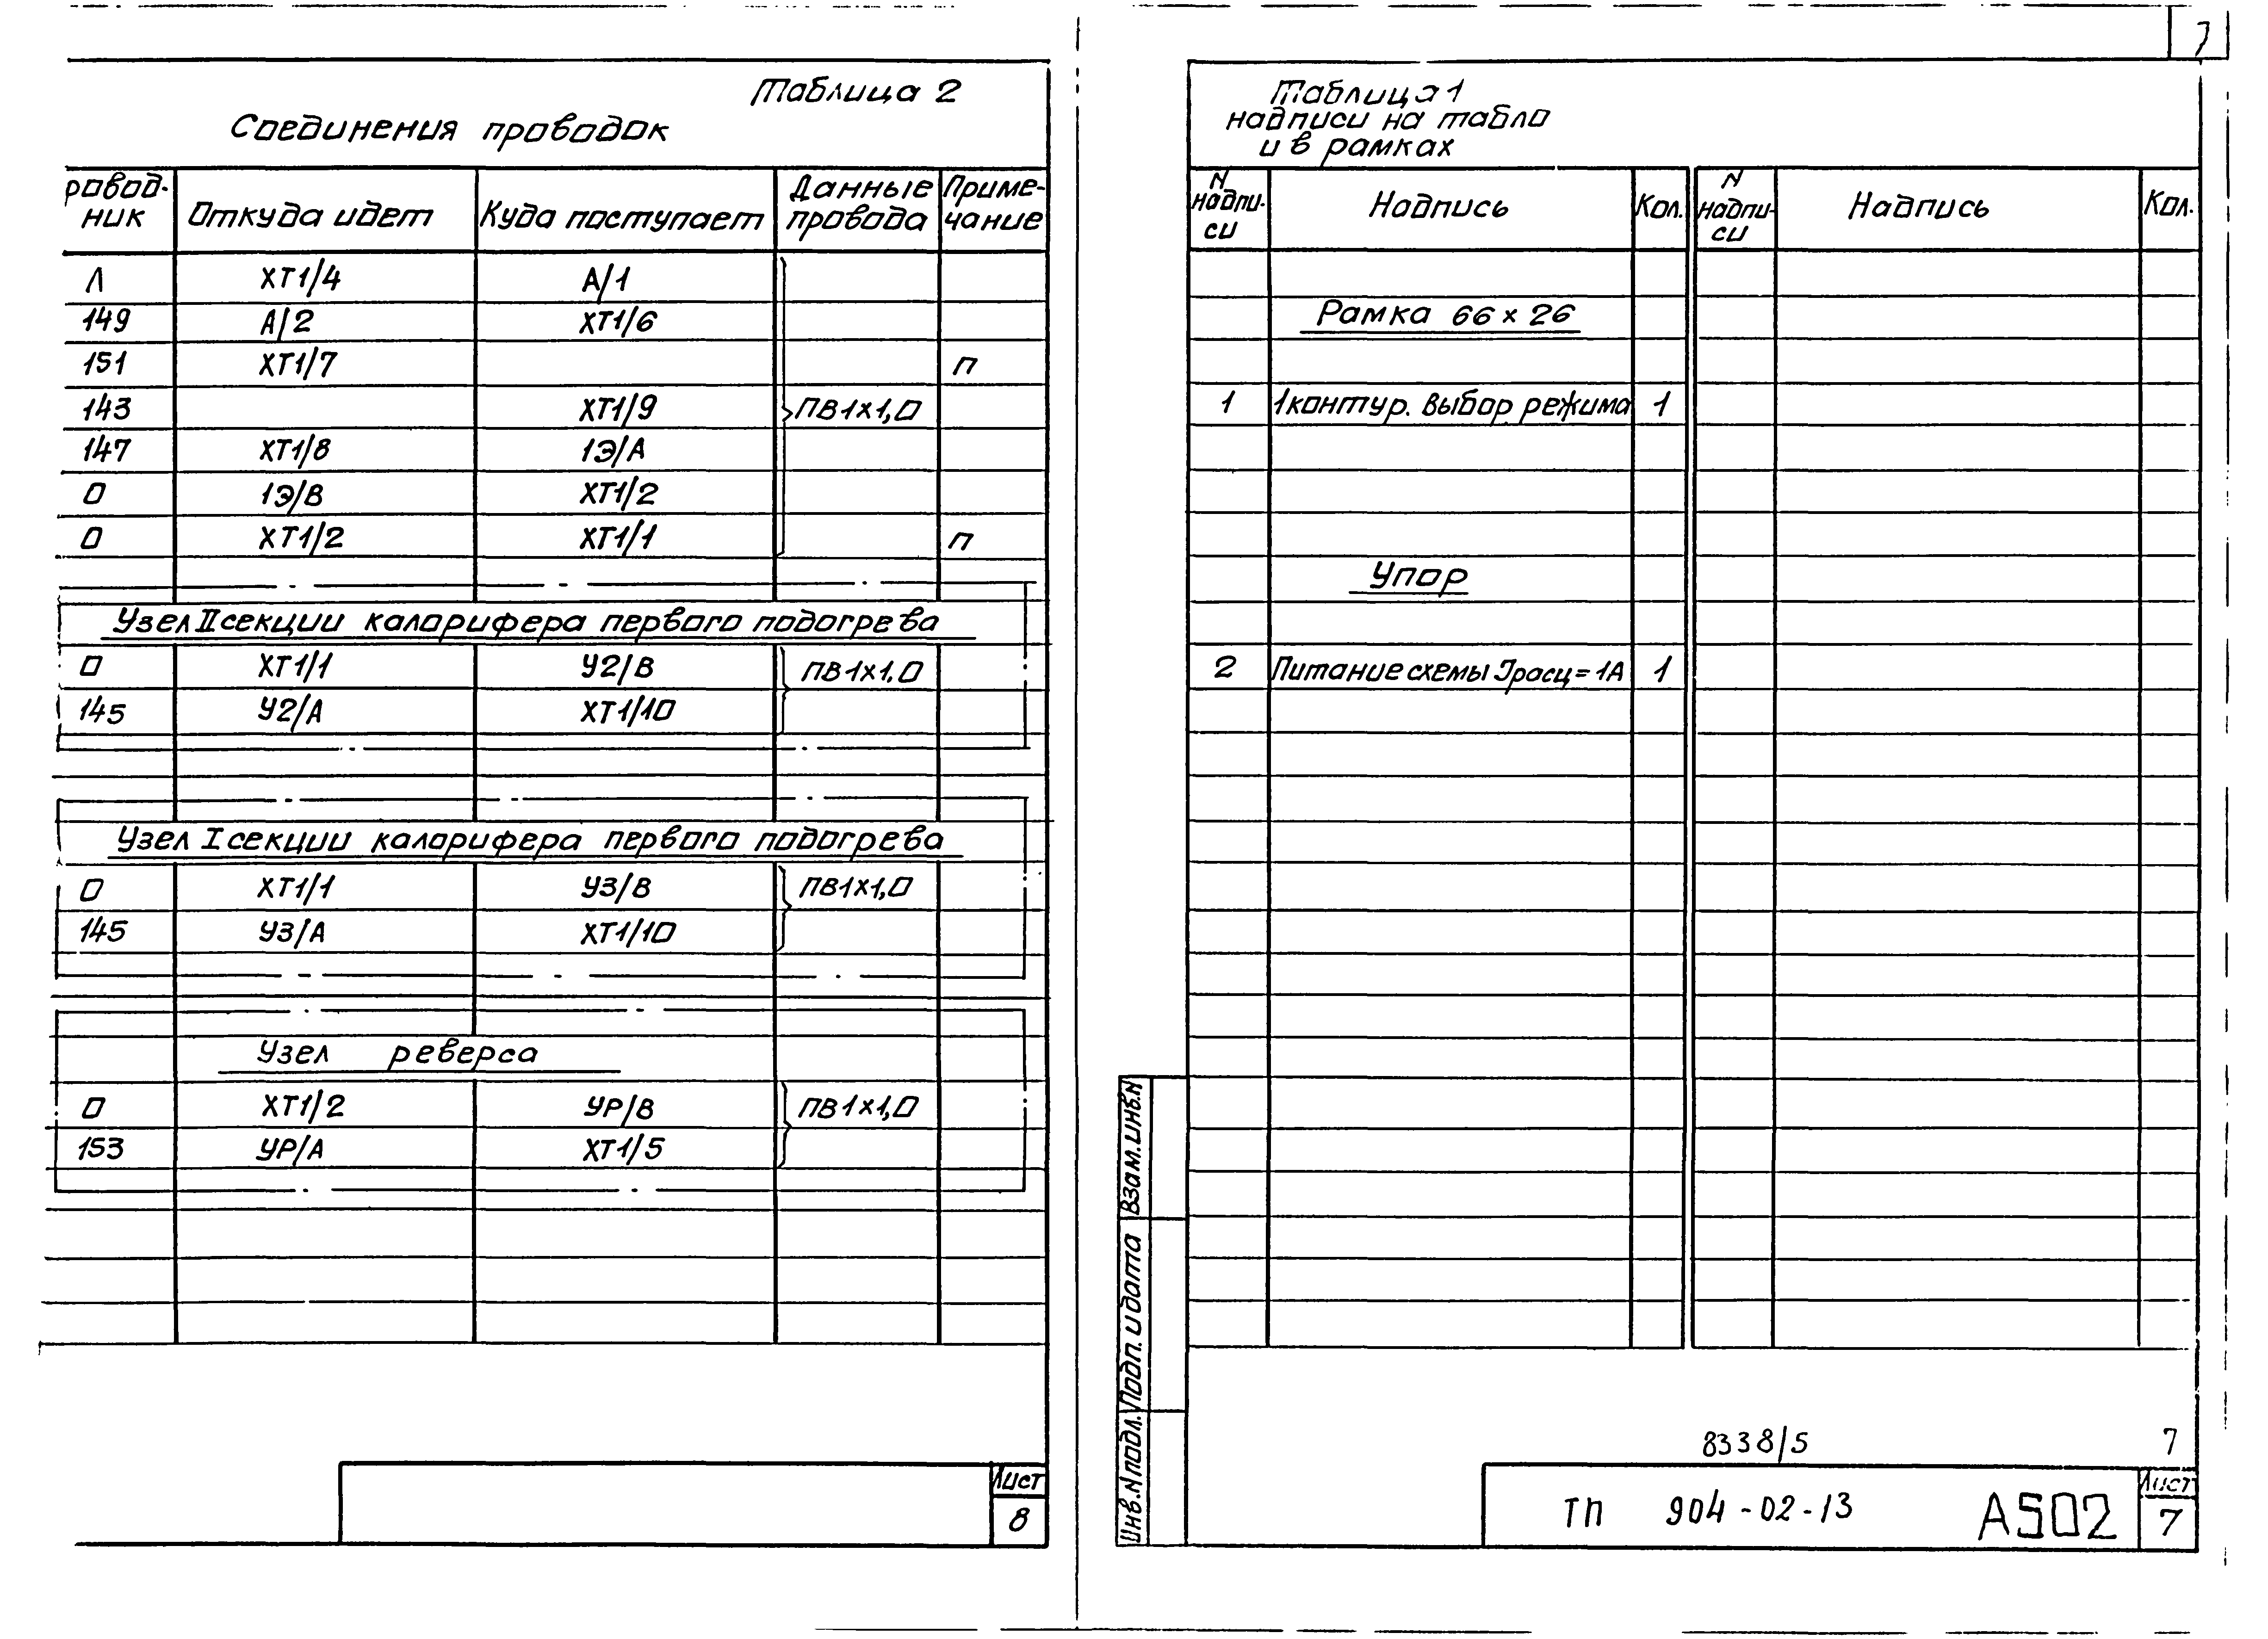 Таблица 2
Соединения проводок
ровод-
ник
Откуда идет
Куда поступает
Данные
провода
Приме-
чание
Л ХТ1/4 А/1
149 А/2 ХТ1/6
151 ХТ1/7 п
143 ХТ1/9 ПВ1х1,0
147 ХТ1/8 1Э/А
0 1Э/В ХТ1/2
0 ХТ1/2 ХТ1/1 п
Узел II секции калорифера первого подогрева
0 ХТ1/1 У2/В ПВ1х1,0
145 У2/А ХТ1/10
Узел I секции калорифера первого подогрева
0 ХТ1/1 У3/В ПВ1х1,0
145 У3/А ХТ1/10
Узел реверса
0 ХТ1/2 УР/В ПВ1х1,0
153 УР/А ХТ1/5
Лист
8
7
Таблица 1
надписи на табло
и в рамках
N
надпи-
си
Надпись
Кол.
N
надпи-
си
Надпись
Кол.
Рамка 66 х 26
1 1контур. Выбор режима 1
Упор
2 Питание схемы Iрасц = 1А 1
Взам.инв.N
Подп. и дата
Инв.N подл.
8338/5
7
ТП 904-02-13 А502
Лист
7